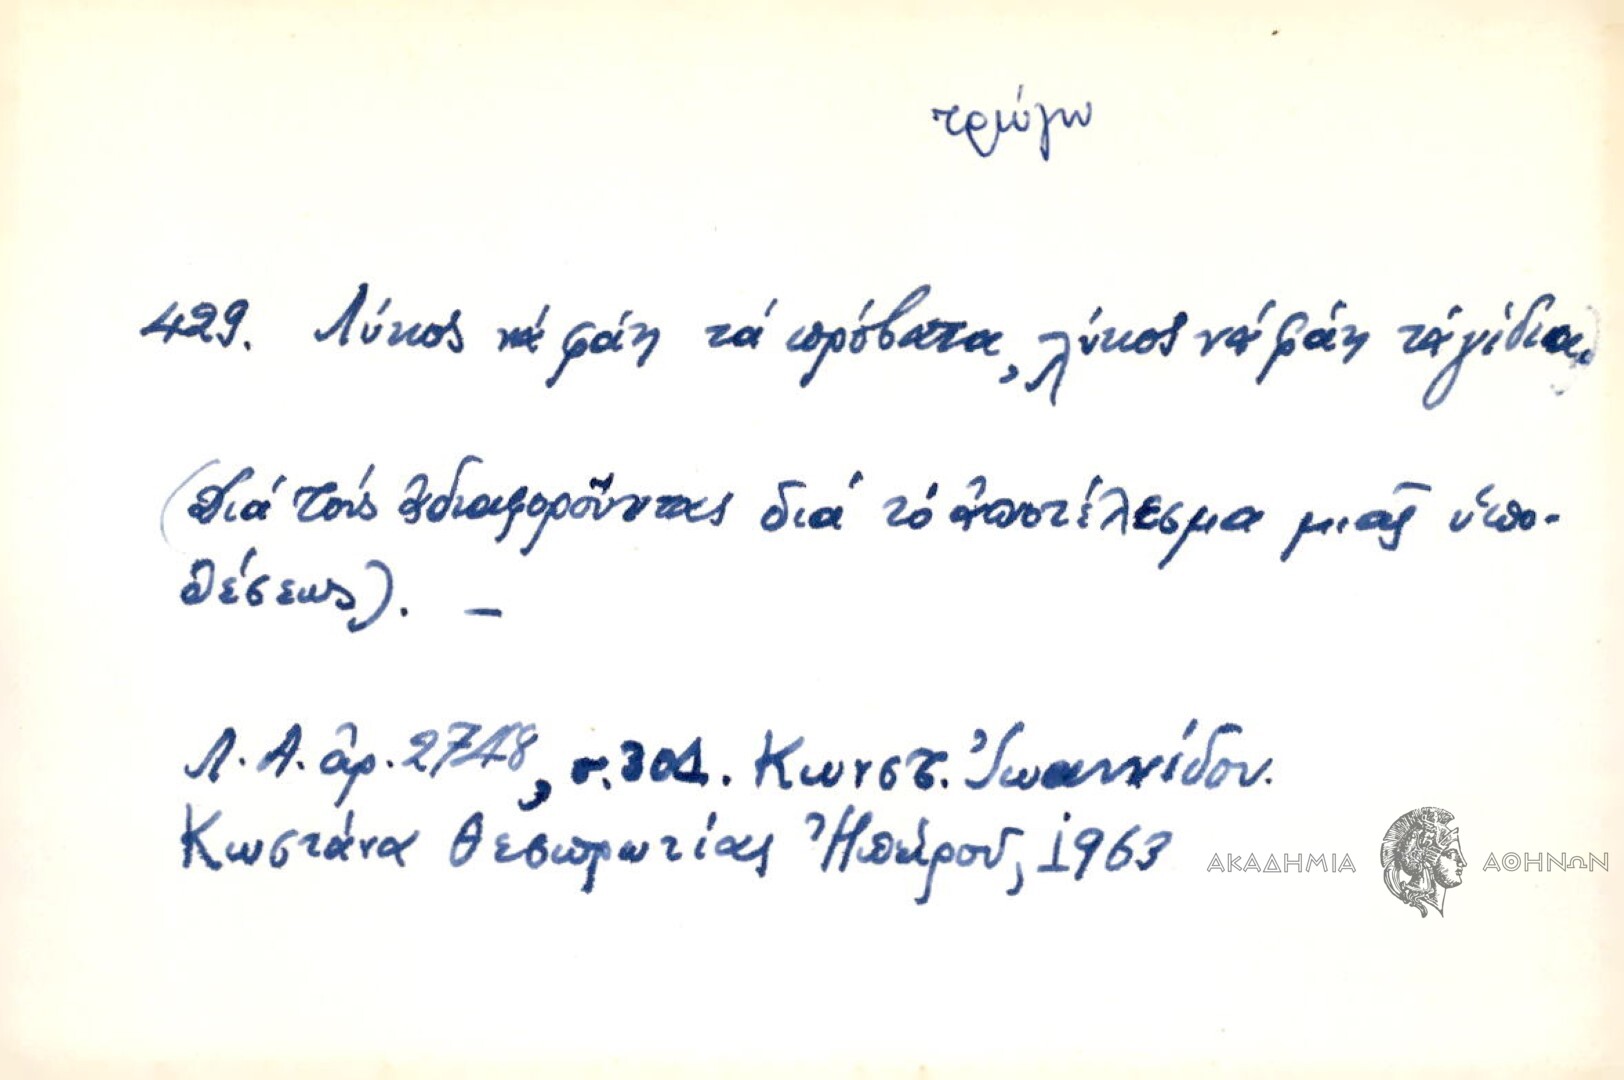 τρώγω
429. Λύκος νά φάη τά πρόβατα, λύκος νά φάη τά γίδια.
(Διά τούς ἀδιαφοροῦντας διά τό ἀποτέλεσμα μιᾶς ὑπο-
θέσεως). –
Λ. Α. ἀρ. 2748, σ. 301. Κωνστ. Ἰωαννίδου.
Κωστάνα Θεσπρωτίας Ἠπείρου, 1963
ΑΚΑΔΗΜΙΑ ΑΘΗΝΩΝ